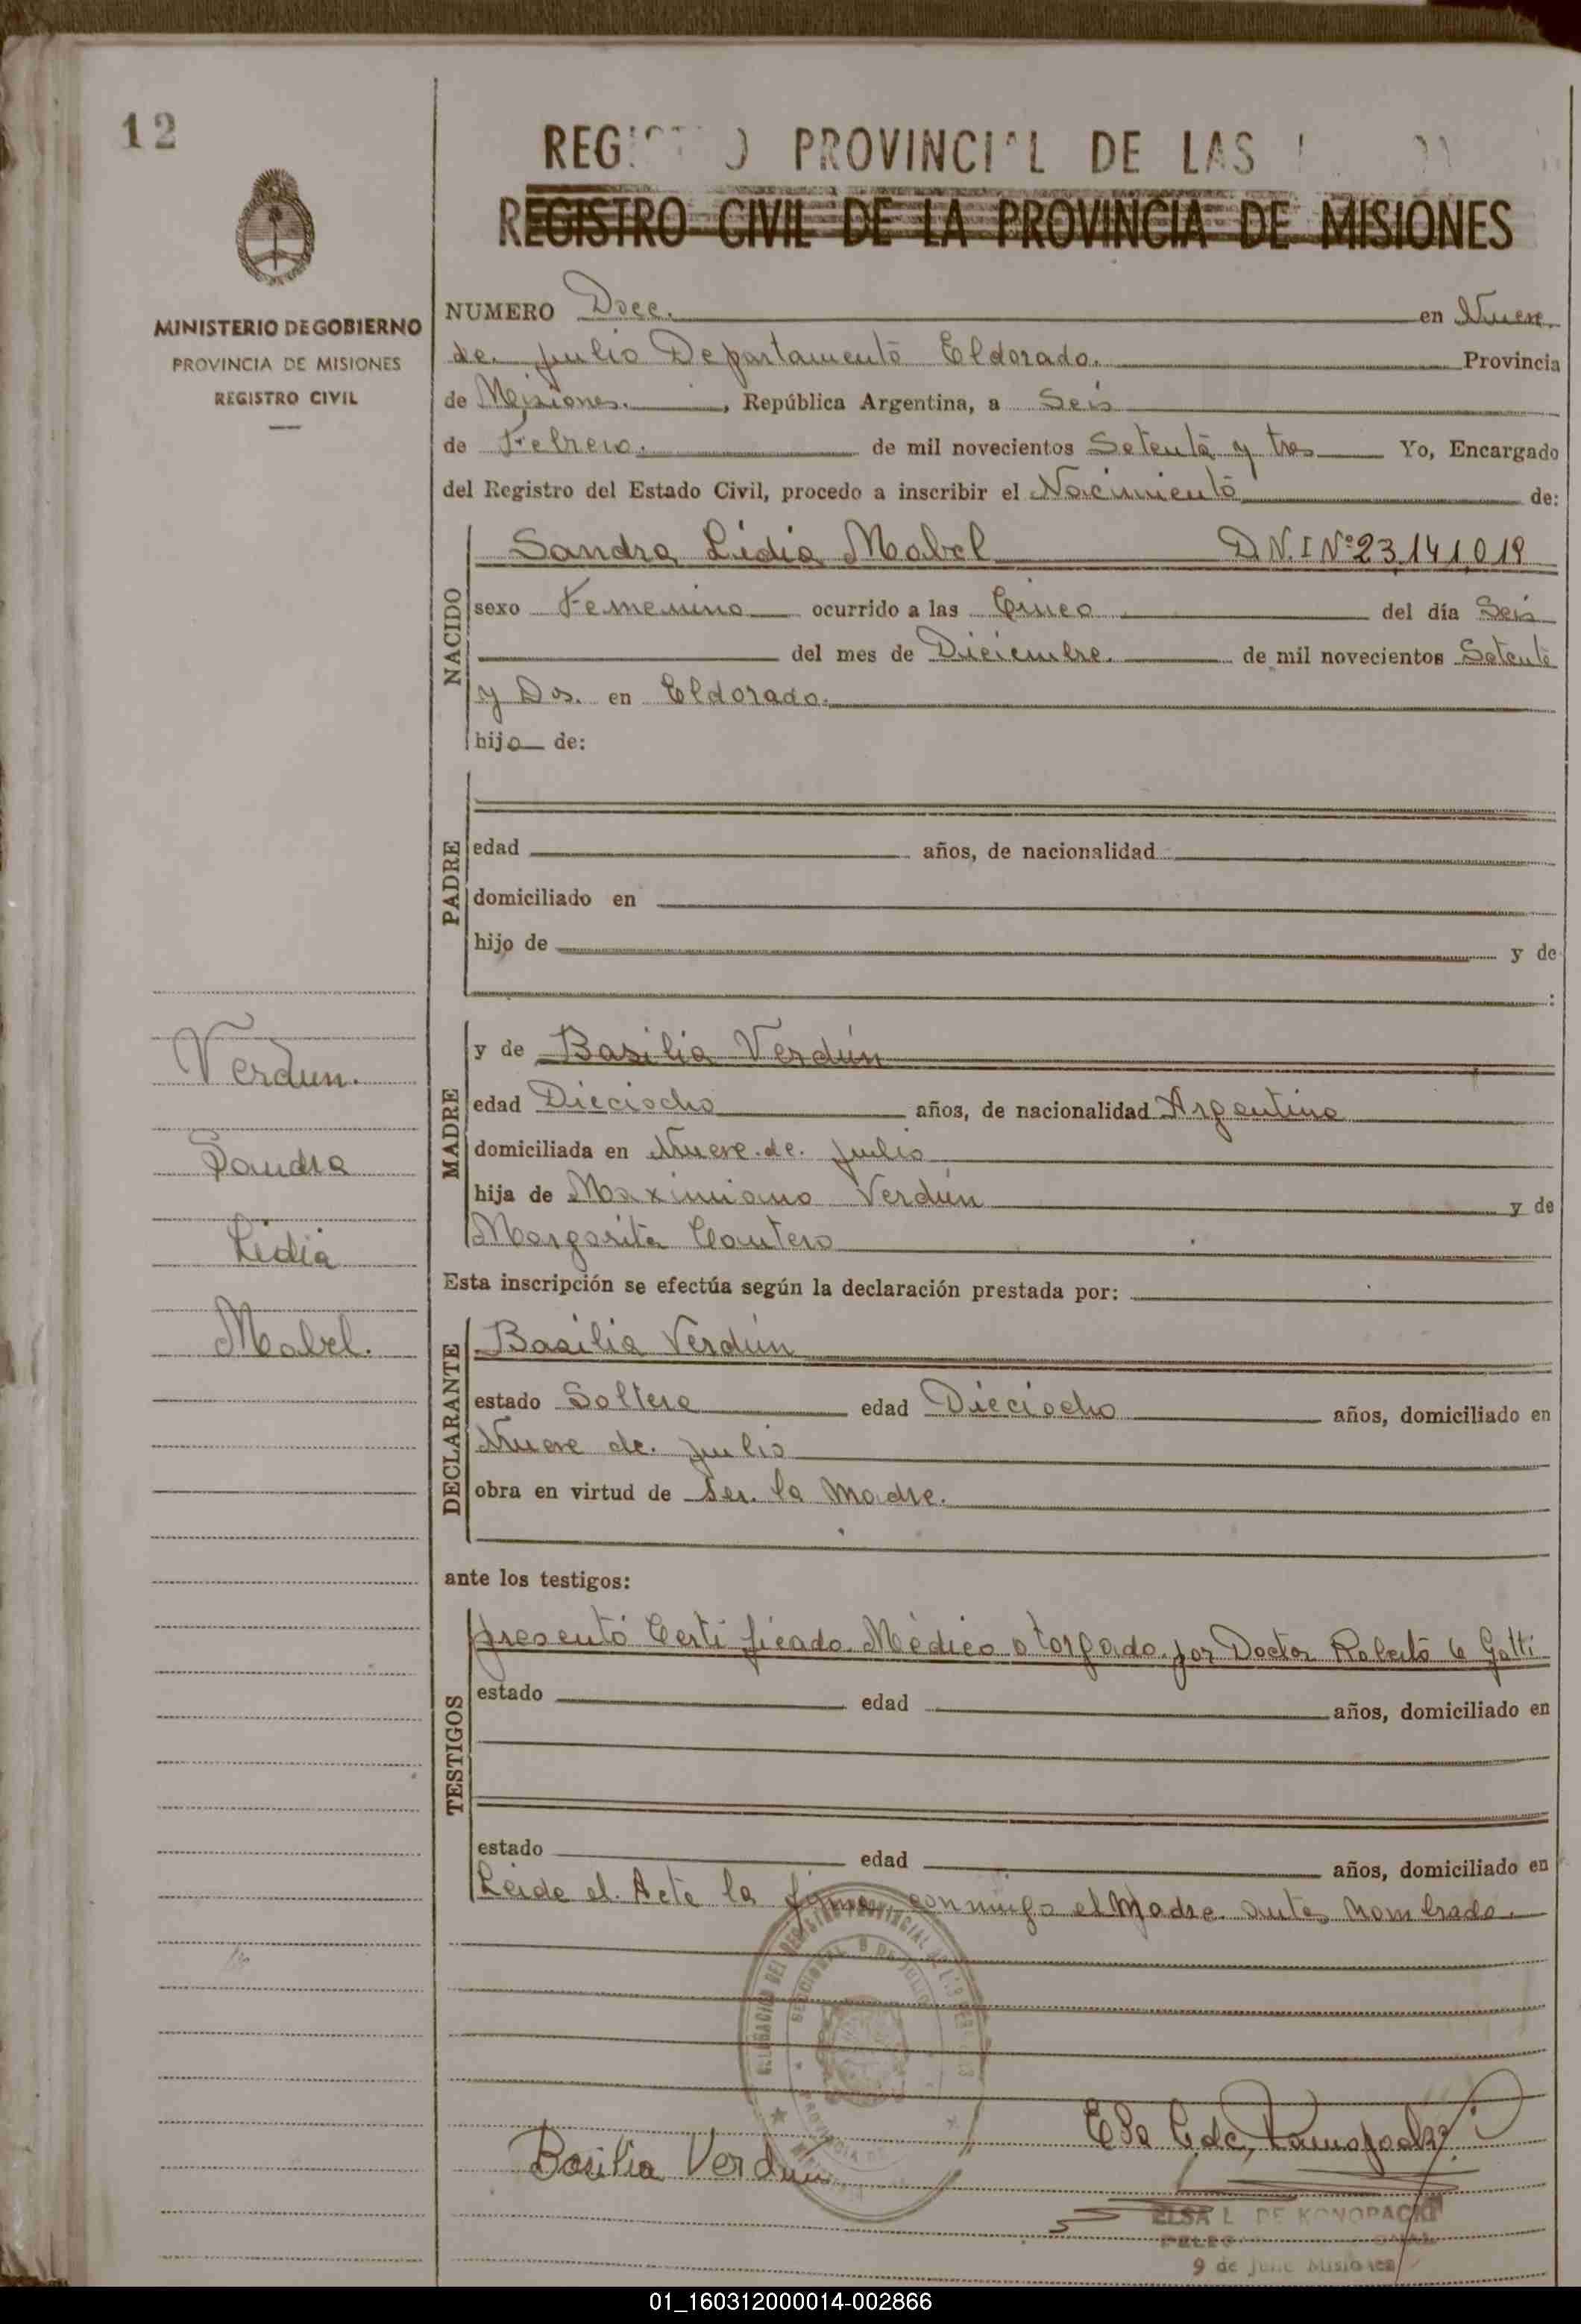 12
MINISTERIO DE GOBIERNO
PROVINCIA DE MISIONES
REGISTRO CIVIL
Verdun.
Sandra
Lidia
Mabel.
PROVINCIAL DE LAS
REGISTRO CIVIL DE LA PROVINCIA DE MISIONES
NUMERO Doce. en Nueve
de Julio Departamento Eldorado. Provincia
de Misiones. , República Argentina, a Seis
de Febrero. de mil novecientos Setenta y tres Yo, Encargado
del Registro del Estado Civil, procedo a inscribir el Nacimiento de:
NACIDO
Sandra Lidia Mabel D.N.I Nº 23,141,019
sexo Femenino ocurrido a las Cinco del día Seis
del mes de Diciembre. de mil novecientos Setenta
y Dos. en Eldorado.
hija de:
PADRE
edad años, de nacionalidad
domiciliado en
hijo de y de
:
MADRE
y de Basilia Verdún
edad Dieciocho años, de nacionalidad Argentina
domiciliada en Nueve de Julio
hija de Maximiano Verdún y de
Margarita Cantero
Esta inscripción se efectúa según la declaración prestada por:
DECLARANTE
Basilia Verdún
estado Soltera edad Dieciocho años, domiciliado en
Nueve de Julio
obra en virtud de Ser la Madre.
ante los testigos:
TESTIGOS
presentó Certificado Médico otorgado por Doctor Roberto Gatti
estado edad años, domiciliado en
estado edad años, domiciliado en
Leida el Acta la firma conmigo el Madre antes nombrada.
DELEGACION DEL REGISTRO PROVINCIAL DE LAS PERSONAS
SECCIONAL 9 DE JULIO
PROVINCIA DE
MISIONES
Basilia Verdun
ELSA L DE KONOPACKI
9 de Julio Misiones
01_160312000014-002866